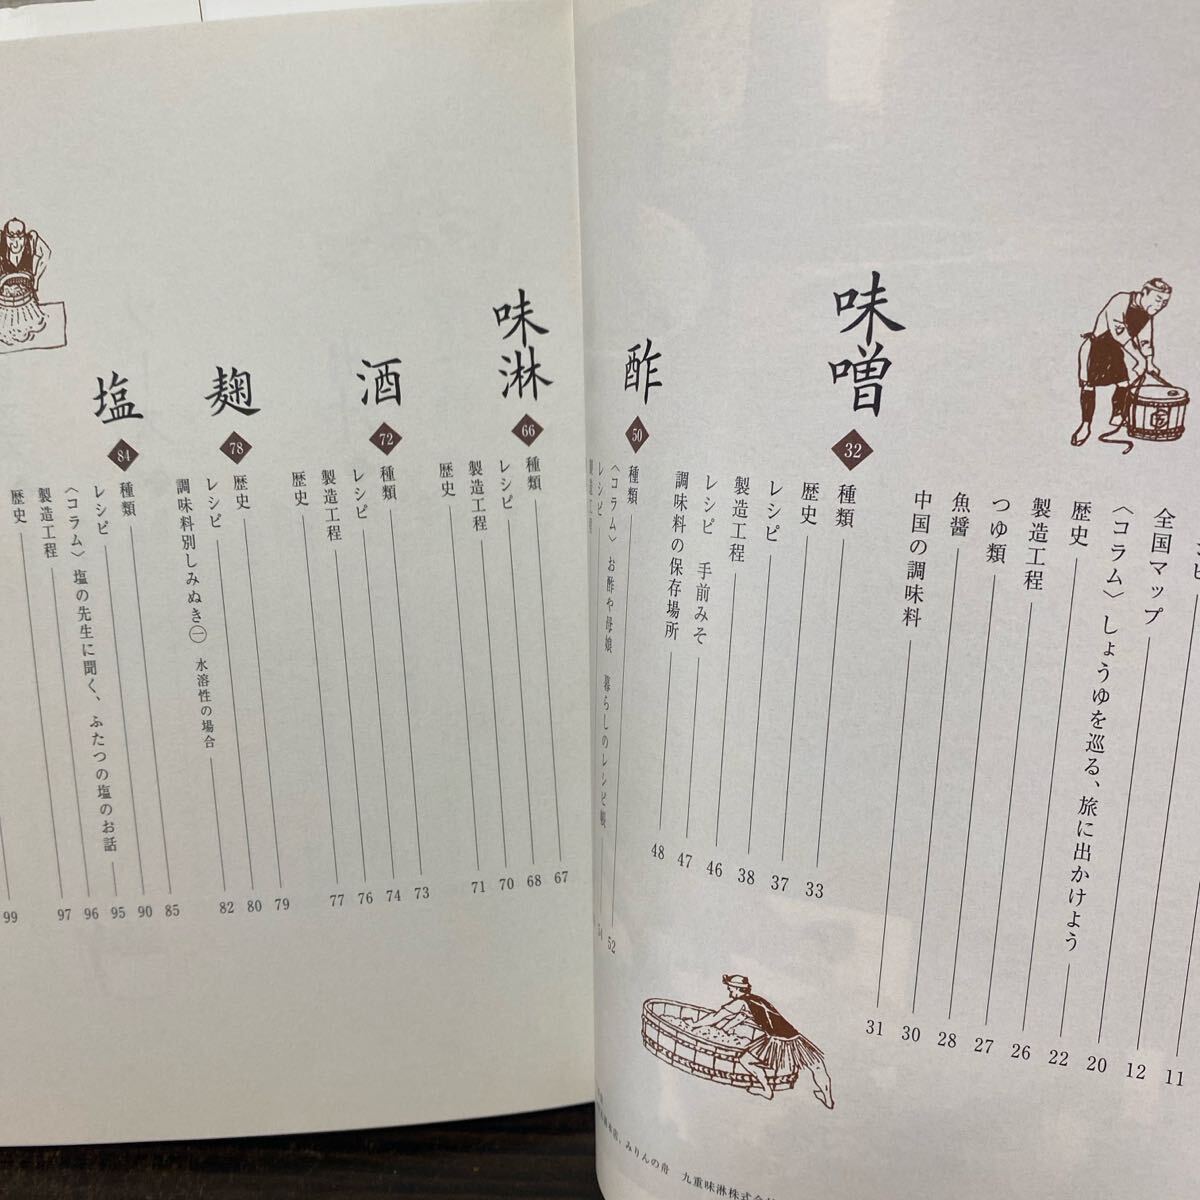 11
シピ 12
全国マップ 20
〈コラム〉しょうゆを巡る、旅に出かけよう 22
歴史 26
製造工程 27
つゆ類 28
魚醤 30
中国の調味料 31
味噌 32
種類 33
歴史 37
レシピ 38
製造工程 46
レシピ 手前みそ 47
調味料の保存場所 48
酢 50
種類 52
〈コラム〉お酢や母娘 暮らしのレシピ帳 54
レシピ
製造工程
みりんの舟 九重味淋株式会社
味淋 66
種類 67
レシピ 68
製造工程 70
歴史 71
酒 72
種類 73
レシピ 74
製造工程 76
歴史 77
麹 78
歴史 79
レシピ 80
調味料別しみぬき㊀ 水溶性の場合 82
塩 84
種類 85
レシピ 90
〈コラム〉塩の先生に聞く、ふたつの塩のお話 95
製造工程 96
歴史 97
99